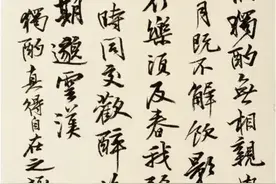 獨酌無相親
月既不解飲影
行樂須及春我
時同交歡醉
期邈雲漢
獨酌真得自在之